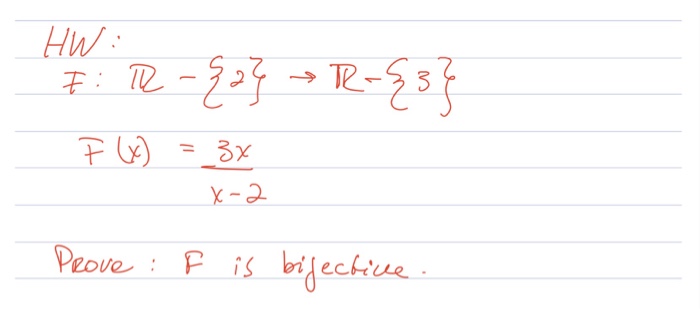 HW:
F: ℝ - {2} → ℝ - {3}
F(x) = 3x
x-2
Prove: F is bijective.